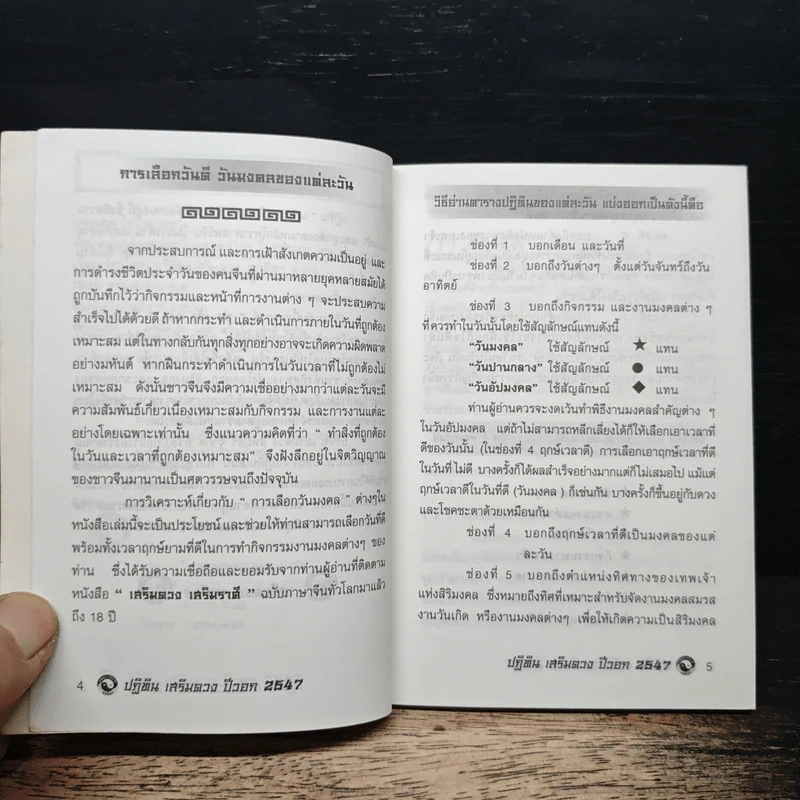 การเลือกวันดี วันมงคลของแต่ละวัน
จากประสบการณ์ และการเฝ้าสังเกตความเป็นอยู่ และ
การดำรงชีวิตประจำวันของคนจีนที่ผ่านมาหลายยุคหลายสมัยได้
ถูกบันทึกไว้ว่ากิจกรรมและหน้าที่การงานต่าง ๆ จะประสบความ
สำเร็จไปได้ด้วยดี ถ้าหากกระทำ และดำเนินการภายในวันที่ถูกต้อง
เหมาะสม แต่ในทางกลับกันทุกสิ่งทุกอย่างอาจจะเกิดความผิดพลาด
อย่างมหันต์ หากฝืนกระทำดำเนินการในวันเวลาที่ไม่ถูกต้องไม่
เหมาะสม ดังนั้นชาวจีนจึงมีความเชื่ออย่างมากว่าแต่ละวันจะมี
ความสัมพันธ์เกี่ยวเนื่องเหมาะสมกับกิจกรรม และการงานแต่ละ
อย่างโดยเฉพาะเท่านั้น ซึ่งแนวความคิดที่ว่า “ ทำสิ่งที่ถูกต้อง
ในวันและเวลาที่ถูกต้องเหมาะสม” จึงฝังลึกอยู่ในจิตวิญญาณ
ของชาวจีนมานานเป็นศตวรรษจนถึงปัจจุบัน
การวิเคราะห์เกี่ยวกับ “ การเลือกวันมงคล ” ต่างๆใน
หนังสือเล่มนี้จะเป็นประโยชน์ และช่วยให้ท่านสามารถเลือกวันที่ดี
พร้อมทั้งเวลาฤกษ์ยามที่ดีในการทำกิจกรรมงานมงคลต่างๆ ของ
ท่าน ซึ่งได้รับความเชื่อถือและยอมรับจากท่านผู้อ่านที่ติดตาม
หนังสือ “ เสริมดวง เสริมราศี ” ฉบับภาษาจีนทั่วโลกมาแล้ว
ถึง 18 ปี
4 ปฏิทิน เสริมดวง ปีวอก 2547
วิธีอ่านตารางปฏิทินของแต่ละวัน แบ่งออกเป็นดังนี้คือ
ช่องที่ 1 บอกเดือน และวันที่
ช่องที่ 2 บอกถึงวันต่างๆ ตั้งแต่วันจันทร์ถึงวัน
อาทิตย์
ช่องที่ 3 บอกถึงกิจกรรม และงานมงคลต่าง ๆ
ที่ควรทำในวันนั้นโดยใช้สัญลักษณ์แทนดังนี้
“วันมงคล” ใช้สัญลักษณ์ ★ แทน
“วันปานกลาง” ใช้สัญลักษณ์ ● แทน
“วันอัปมงคล” ใช้สัญลักษณ์ ◆ แทน
ท่านผู้อ่านควรจะงดเว้นทำพิธีงานมงคลสำคัญต่าง ๆ
ในวันอัปมงคล แต่ถ้าไม่สามารถหลีกเลี่ยงได้ก็ให้เลือกเอาเวลาที่
ดีของวันนั้น (ในช่องที่ 4 ฤกษ์เวลาดี) การเลือกเอาฤกษ์เวลาที่ดี
ในวันที่ ไม่ดี บางครั้งก็ได้ผลสำเร็จอย่างมากแต่ก็ไม่เสมอไป แม้แต่
ฤกษ์เวลาดีในวันที่ดี (วันมงคล ) ก็เช่นกัน บางครั้งก็ขึ้นอยู่กับดวง
และโชคชะตาด้วยเหมือนกัน
ช่องที่ 4 บอกถึงฤกษ์เวลาที่ดีเป็นมงคลของแต่
ละวัน
ช่องที่ 5 บอกถึงตำแหน่งทิศทางของเทพเจ้า
แห่งสิริมงคล ซึ่งหมายถึงทิศที่เหมาะสำหรับจัดงานมงคลสมรส
งานวันเกิด หรืองานมงคลต่างๆ เพื่อให้เกิดความเป็นสิริมงคล
ปฏิทิน เสริมดวง ปีวอก 2547 5